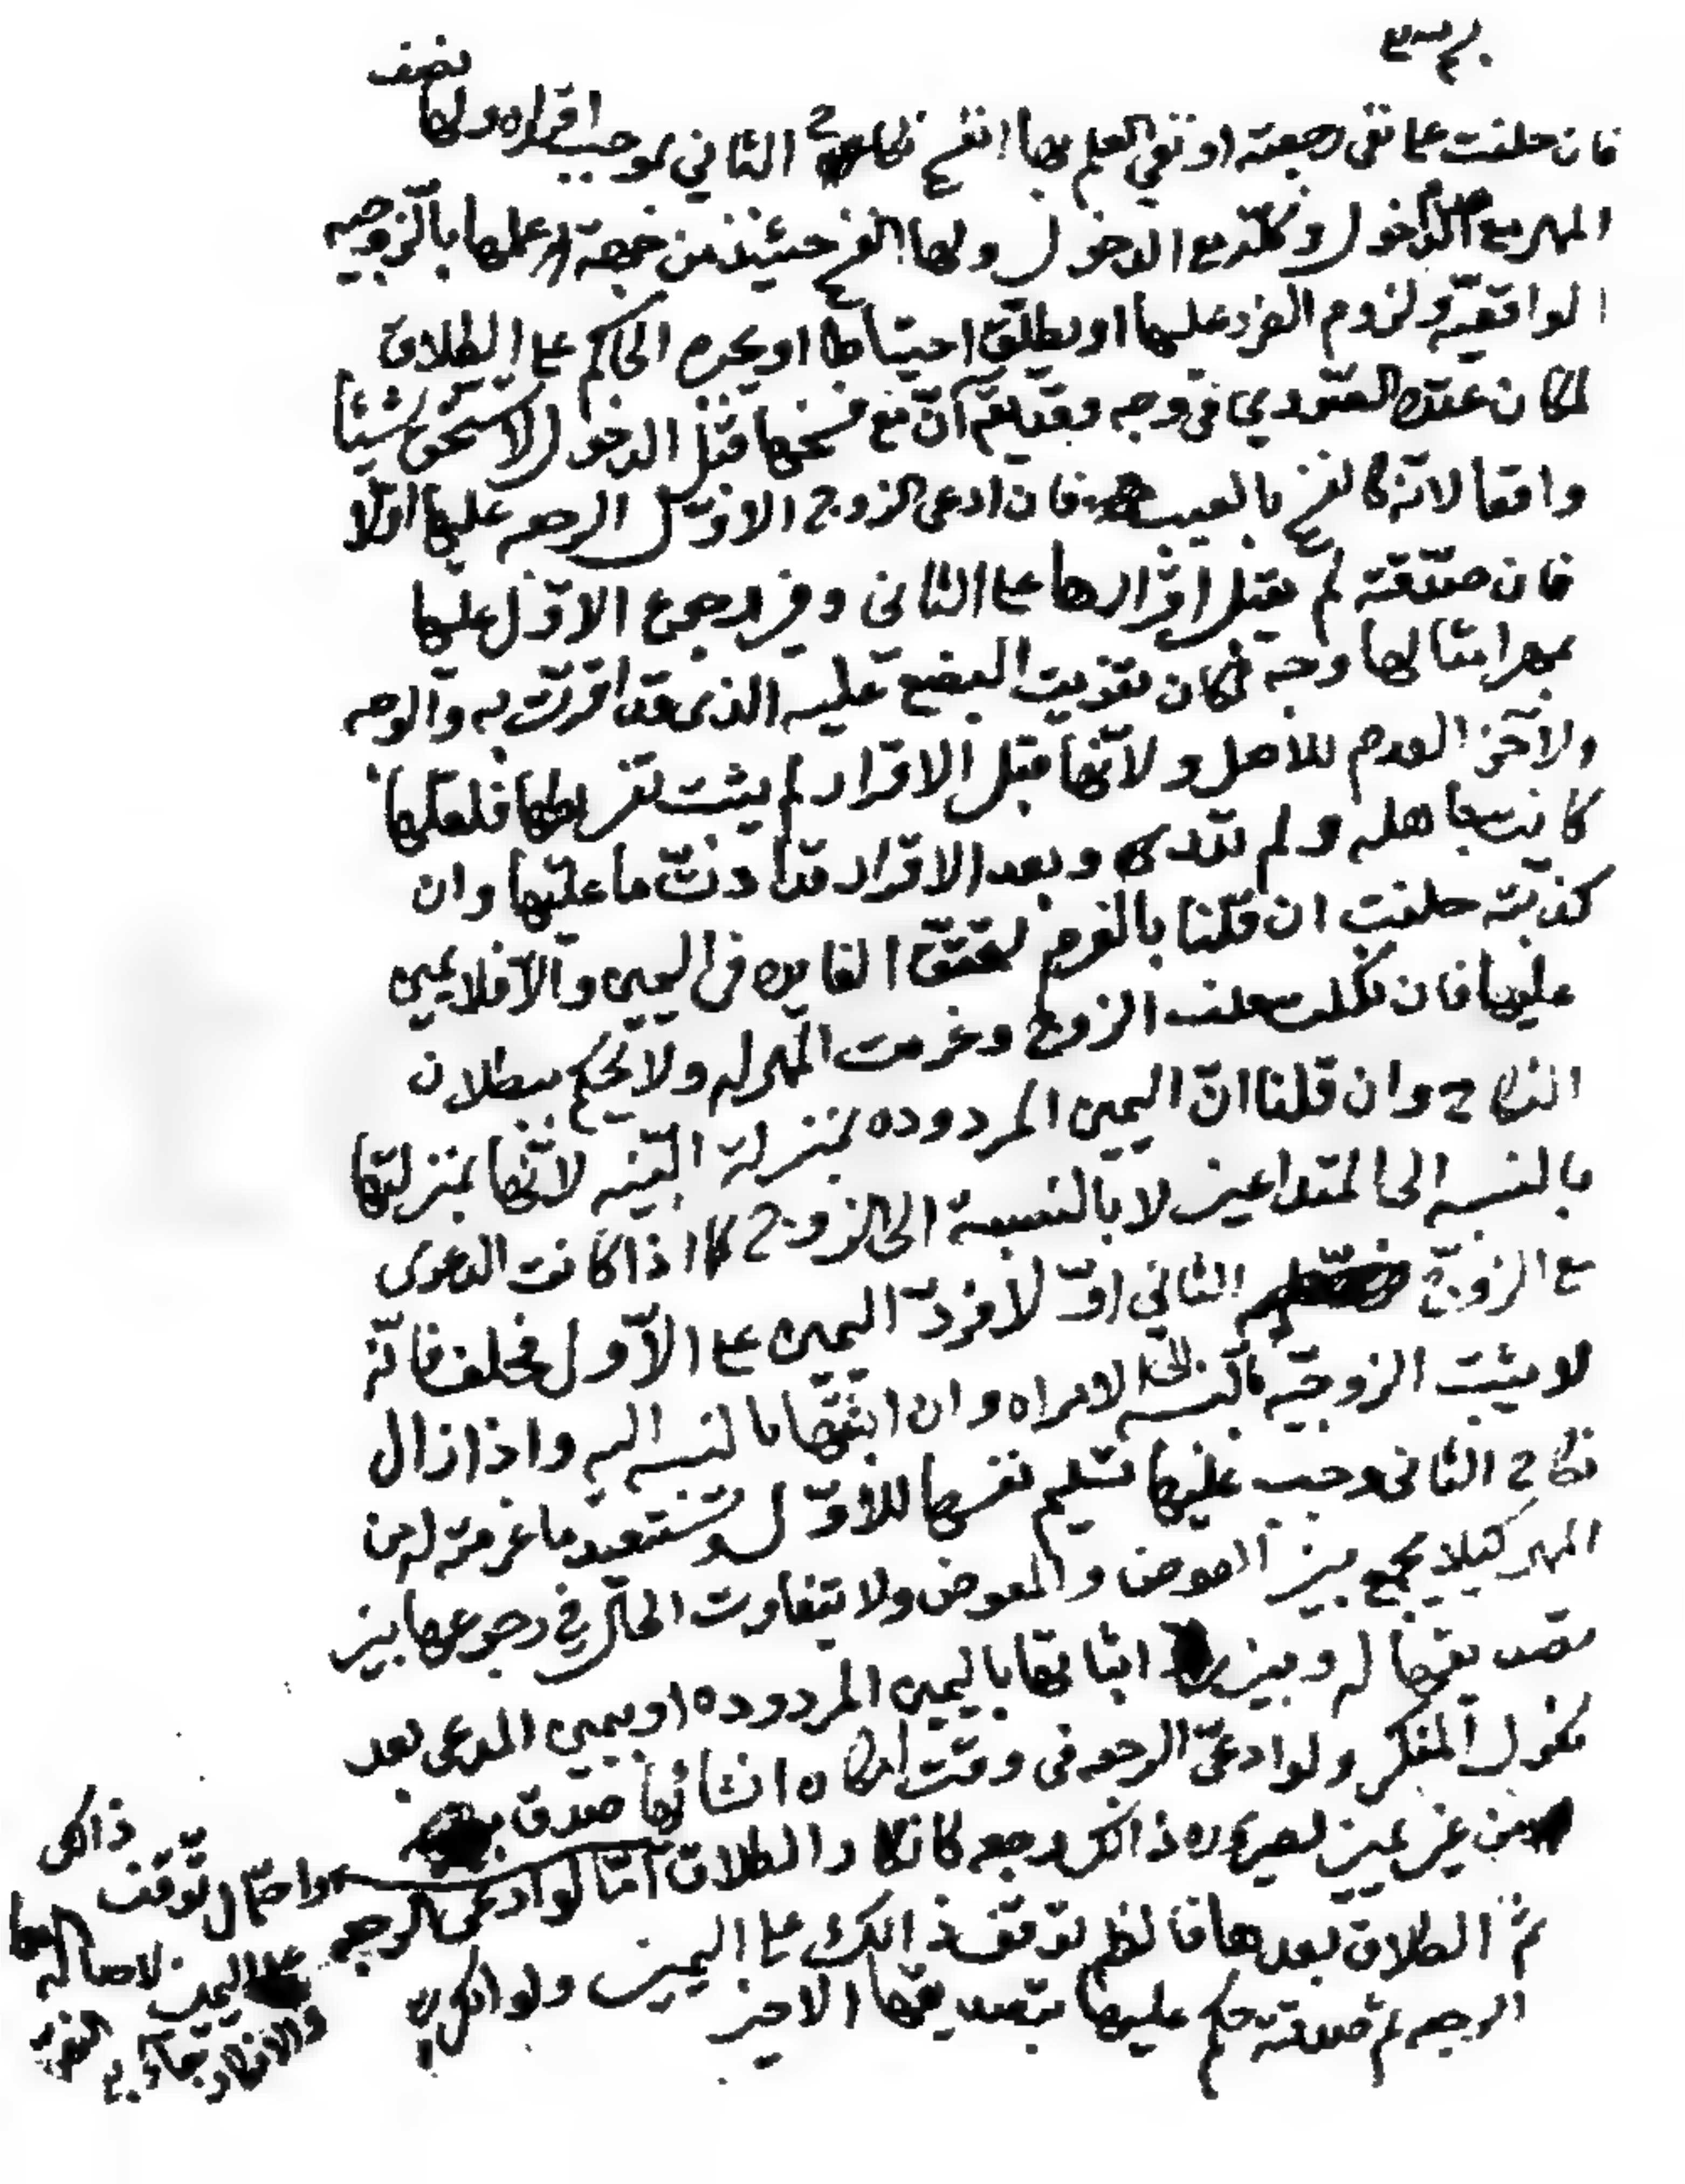 فان حلفت على نفي رجعته او نفي العلم بها انفسخ نكاح الثاني بموجب اقراره ولها نصف
المهر مع عدم الدخول وكله مع الدخول ولها الفسخ حينئذ من جهة علمها بالزوجيه
الواقعية ولزوم الضرر عليها او يطلق احتياطا او يجبره الحاكم على الطلاق
لمكان عقده الصوري في وجه وبعد يقم ان مع فسخها قبل الدخول لا تستحق شيئا
واقعا لانه كالفسخ بالعيب فان ادعى الزوج الاول الرجعه عليها اولا
فان صدقته لم يقبل اقرارها على الثاني وفي رجوع الاول عليها
بمهر امثالها وجه لمكان تفويت البضع عليه الذي قد اقرت به والوجه
الآخر العدم للاصل ولانها قبل الاقرار لم يثبت تفريطها فلعلها
كانت جاهله ولم تدرى وبعد الاقرار قد ادت ما عليها وان
كذبته حلفت ان قلنا بالغرم لتحقق الفايده في اليمين والا فلا يمين
عليها فان نكلت حلف الزوج وغرمت المهر له ولا يحكم ببطلان
النكاح وان قلنا ان اليمين المردوده بمنزلة البينه لانها بمنزلتها
بالنسبه الى المتداعيين لا بالنسبة الى الزوج كما اذا كانت الدعوى
مع الزوج الثاني اولا فرد اليمين على الاول فحلف فانه
لا يثبت الزوجيه بالنسبه الى الامراه وان اثبتها بالنسبه اليه واذا زال
نكاح الثاني وجب عليها تسليم نفسها للاول وتستعيد ما غرمته له من
المهر كيلا يجمع بين العوض والمعوض ولا يتفاوت الحال في رجوعها بين
تصديقها له وبين اثباتها باليمين المردوده او بيمين المدعي بعد
نكول المنكر ولو ادعى الرجعه في وقت امكان انشائها صدق
من غير يمين لصيروره ذالك رجعه كانكار الطلاق اما لو ادعى الرجعه
ثم الطلاق بعدها فالظم توقف ذالك على اليمين ولو انكرت
الرجعه ثم صدقته حكم عليها بتصديقها الاخير
واحتمال توقف ذالك
على اليمين لاصالة